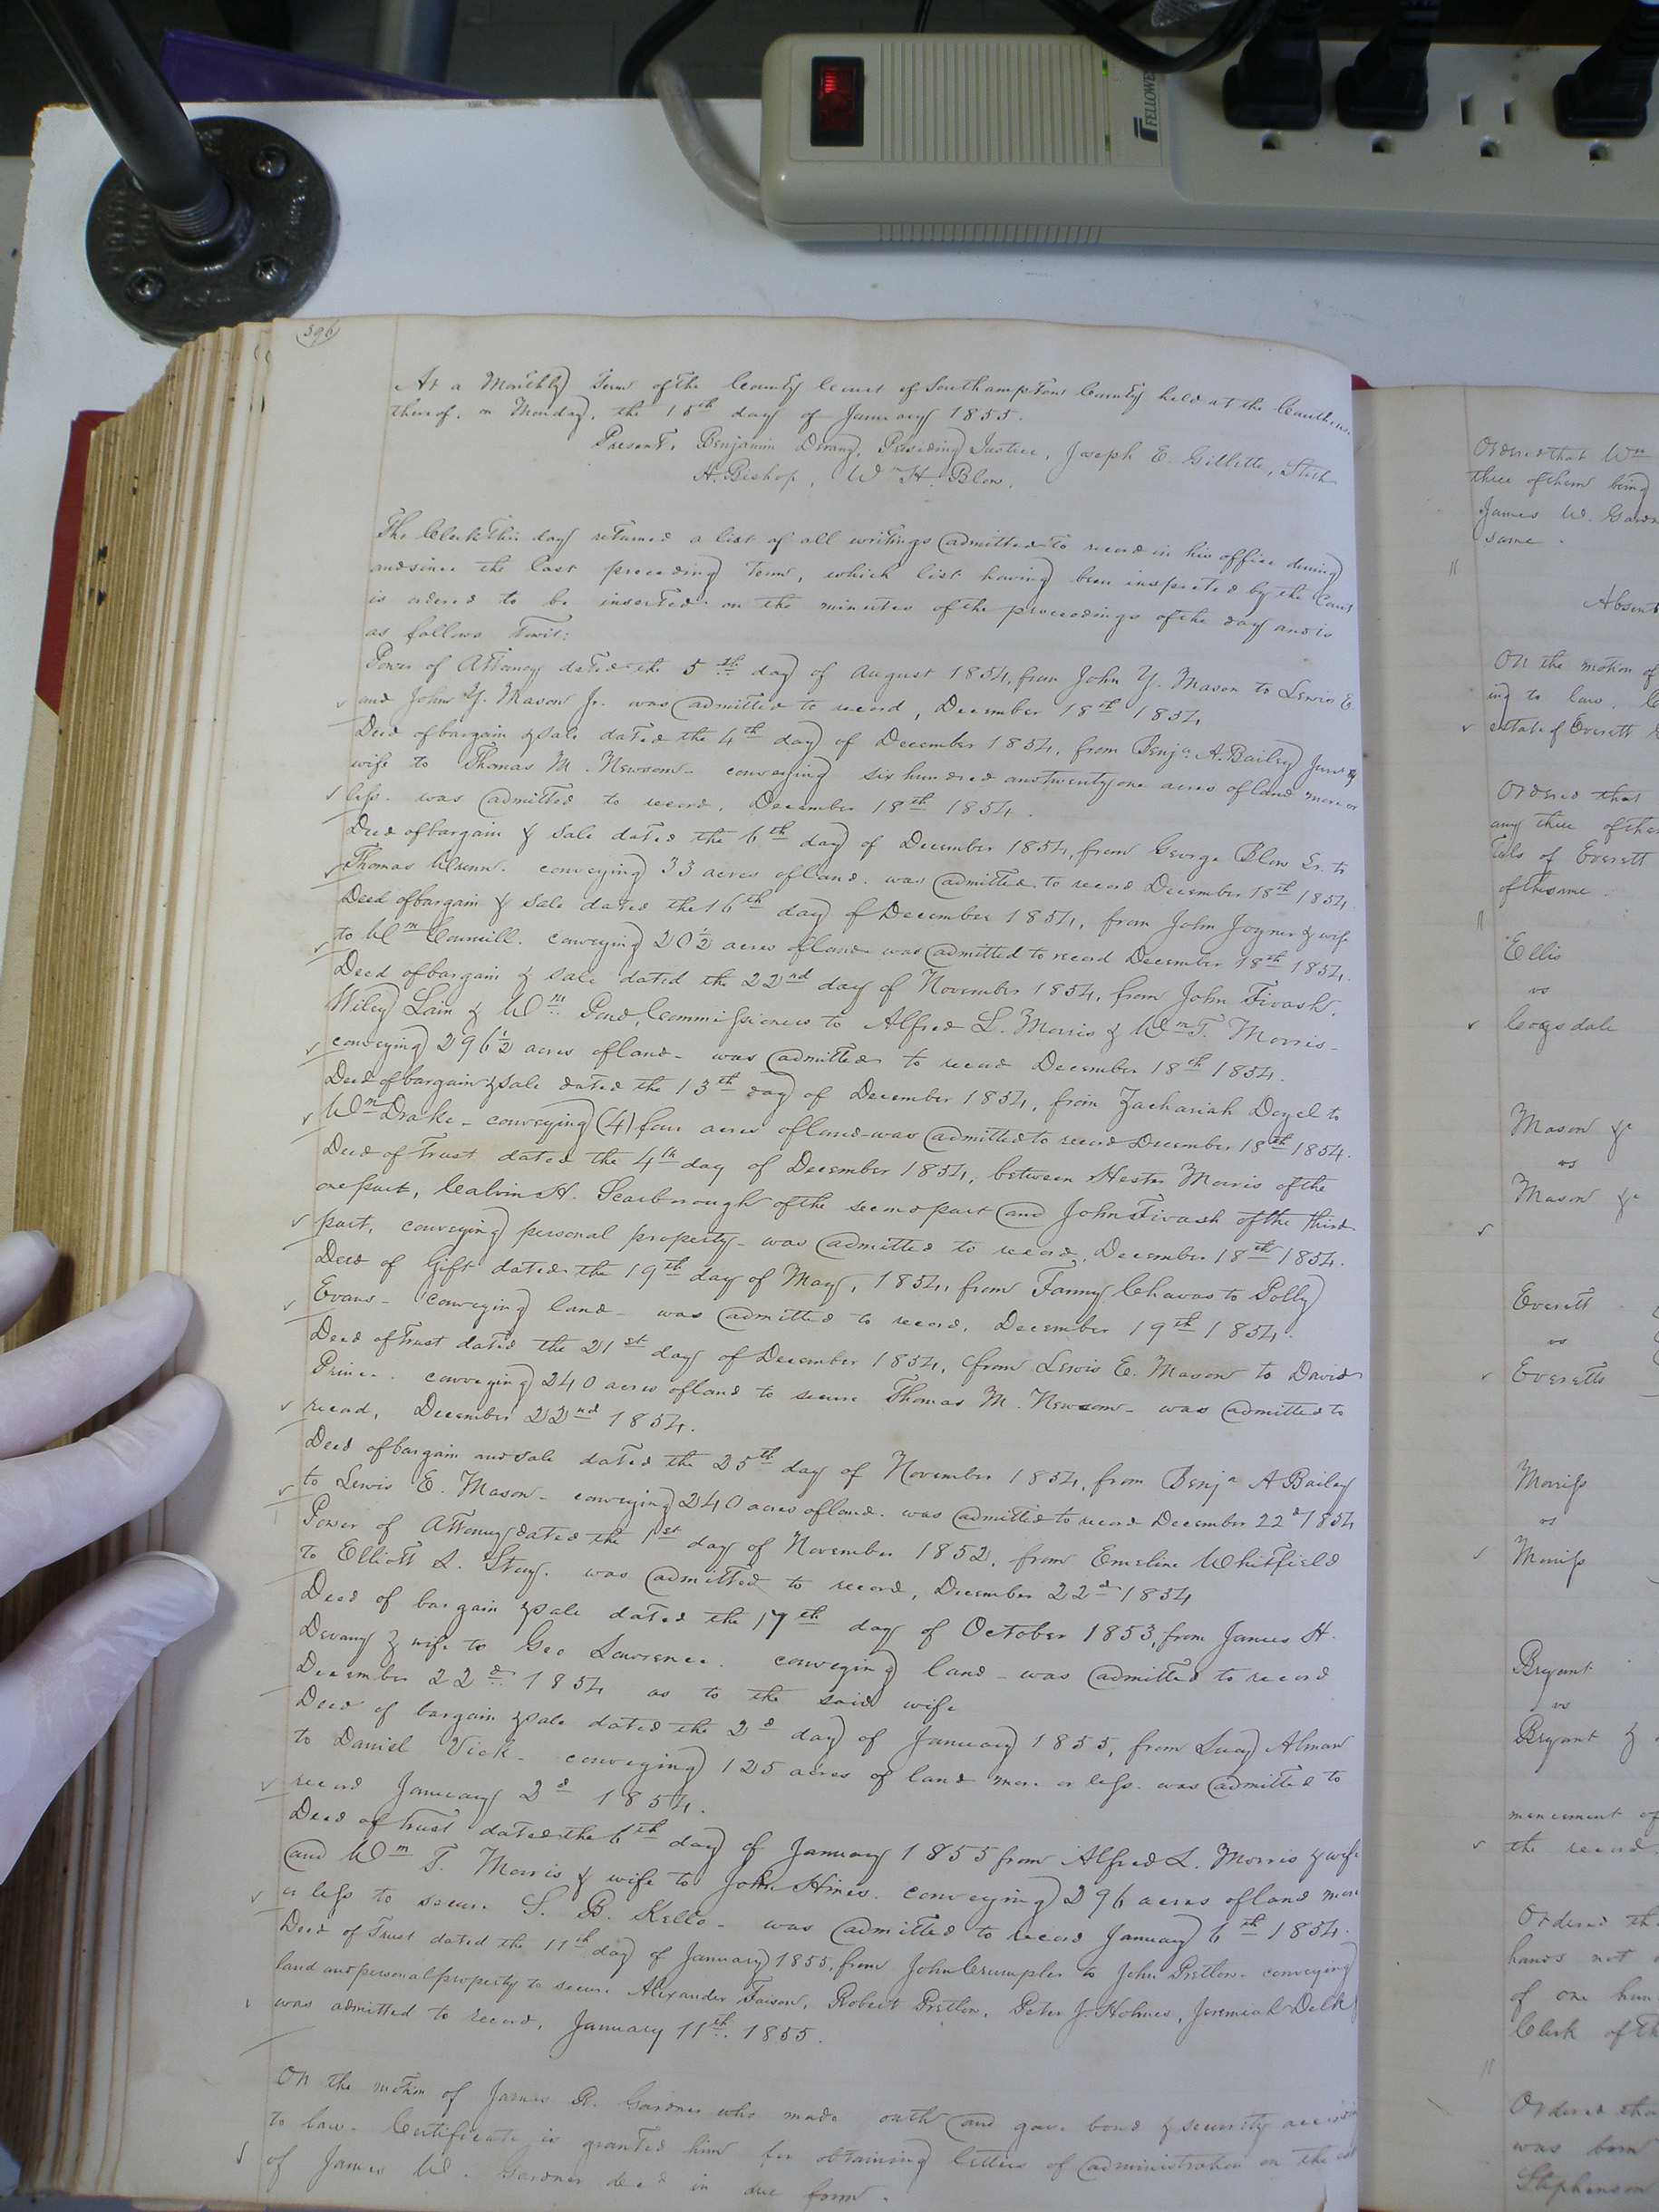 FELLOWES
396
At a Monthly Term of the County Court of Southampton County held at the Courthouse
thereof, on Monday, the 15th day of January 1855.
Present, Benjamin Devany, Presiding Justice, Joseph E. Gillette, Stith
H. Bishop, Wm H. Blow,
The Clerk this day returned a list of all writings admitted to record in his office during
and since the last preceding Term, which list having been inspected by the Court
is ordered to be inserted on the minutes of the proceedings of the day and is
as follows Towit:
Power of Attorney dated the 5th day of August 1854, from John Y. Mason to Lewis E.
and John Y. Mason Jr. was admitted to record, December 18th 1854
Deed of bargain & sale dated the 4th day of December 1854, from Benja. A. Bailey
wife to Thomas M. Newsom - conveying six hundred and twenty one acres of land more or
less. was admitted to record, December 18th 1854.
Deed of bargain & sale dated the 6th day of December 1854, from George Blow Sr. to
Thomas conveying 33 acres of land. was admitted to record December 18th 1854.
Deed of bargain & sale dated the 16th day of December 1854, from John Joyner & wife
to Wm Councill. conveying 20 1/2 acres of land was admitted to record December 18th 1854.
Deed of bargain & sale dated the 22nd day of November 1854, from John Tivash,
Wiley Lain & Wm. Pond, Commissioners to Alfred L. Morris & Wm T. Morris -
conveying 296 1/2 acres of land - was admitted to record December 18th 1854.
Deed of bargain & sale dated the 13th day of December 1854, from Zachariah Doyel to
Wm Drake - conveying (4) four acres of land - was admitted to record December 18th 1854.
Deed of Trust dated the 4th day of December 1854, between Hester Morris of the
one part, Calvin H. Scarborough of the second part and John Tivash of the third
part, conveying personal property - was admitted to record, December 18th 1854.
Deed of Gift dated the 19th day of May, 1854, from Fanny Chavas to Polly
Evans - conveying land - was admitted to record, December 19th 1854.
Deed of Trust dated the 21st day of December 1854, from Lewis E. Mason to David
Prince. conveying 240 acres of land to secure Thomas M. Newsom - was admitted to
record, December 22nd 1854.
Deed of bargain and sale dated the 25th day of November 1854, from Benja A Bailey
to Lewis E. Mason - conveying 240 acres of land. was admitted to record December 22d 1854
Power of Attorney dated the 1st day of November 1852, from Emeline Whitfield
to Elliott L. Story. was admitted to record, December 22d 1854
Deed of bargain & sale dated the 17th day of October 1853, from James H.
Devany & wife to Geo Lawrence. conveying land - was admitted to record
December 22d 1854 as to the said wife
Deed of bargain & sale dated the 2d day of January 1855, from Lucy Alman
to Daniel Vick - conveying 125 acres of land more or less. was admitted to
record January 2d 1854.
Deed of Trust dated the 6th day of January 1855 from Alfred L. Morris & wife
and Wm T. Morris & wife to John Hines. conveying 296 acres of land more
or less to secure S. B. Kello - was admitted to record January 6th 1854.
Deed of Trust dated the 11th day of January 1855, from John Crumpler to John Pretlow - conveying
land and personal property to secure Alexander Faison, Robert Pretlow, Peter J. Holmes, Jeremiah Delk
was admitted to record, January 11th. 1855.
On the motion of James R. Gardner who made oath and gave bond & security according
to law. Certificate is granted him for obtaining letters of administration on the est
of James W. Gardner decd in due form.
Ordered that Wm
three of them being
James W. Gardn
same.
Absent
On the motion of
ing to law.
estate of Everett
Ordered that
any three of them
of Everett
of the same.
Ellis
vs
Cogsdale
Mason &c
vs
Mason &c
Everett
vs
Everetts
Morriss
vs
Morriss
Bryant
vs
Bryant &
mencement of
the record.
Ordered th
hands not
of one hun
Clerk of th
Ordered that
was born
Stephenson